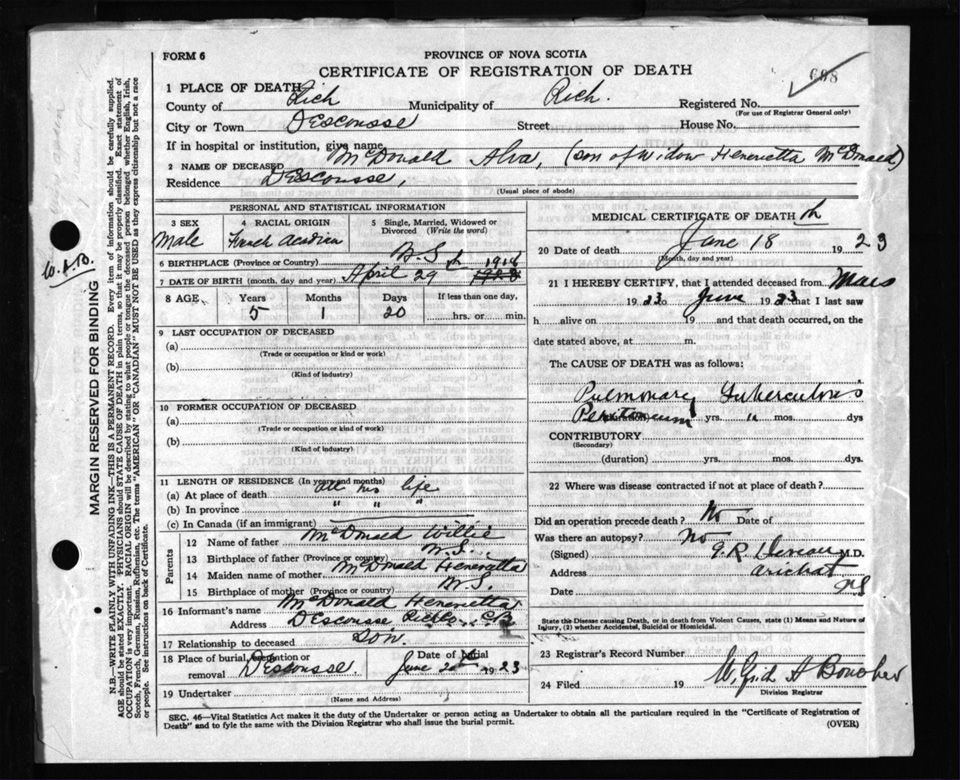 FORM 6
PROVINCE OF NOVA SCOTIA
CERTIFICATE OF REGISTRATION OF DEATH
698
1 PLACE OF DEATH
County of Rich Municipality of Rich. Registered No.
(For use of Registrar General only)
City or Town DEscousse Street House No.
If in hospital or institution, give name
2 NAME OF DECEASED McDonald Alva, (son of widow Henerietta McDonald)
Residence DEscousse,
(Usual place of abode)
PERSONAL AND STATISTICAL INFORMATION
3 SEX 4 RACIAL ORIGIN 5 Single, Married, Widowed or Divorced (Write the word)
Male French Acadian
6 BIRTHPLACE (Province or Country) N.S.
7 DATE OF BIRTH (month, day and year) April 29th 1918
8 AGE Years Months Days If less than one day,
5 1 20 hrs. or min.
9 LAST OCCUPATION OF DECEASED
(a)
(Trade or occupation or kind or work)
(b)
(Kind of industry)
10 FORMER OCCUPATION OF DECEASED
(a)
(Trade or occupation or kind of work)
(b)
(Kind of industry)
11 LENGTH OF RESIDENCE (In years and months)
(a) At place of death all his life
(b) In province " " "
(c) In Canada (if an immigrant)
Parents
12 Name of father McDonald Willie
13 Birthplace of father (Province or country) N.S.
14 Maiden name of mother McDonald Henerietta
15 Birthplace of mother (Province or country) N.S.
16 Informant's name McDonald Henerietta
Address DEscousse Rich Co. C.B.
17 Relationship to deceased Son.
18 Place of burial, cremation or removal DEscousse. Date of burial June 20th 1923
19 Undertaker
(Name and Address)
MEDICAL CERTIFICATE OF DEATH
20 Date of death June 18th 1923
(Month, day and year)
21 I HEREBY CERTIFY, that I attended deceased from
1923 to June 1923 that I last saw
h alive on 19 and that death occurred, on the
date stated above, at m.
The CAUSE OF DEATH was as follows:
Pulmonary Tuberculosis
Peritoneum yrs. " mos. dys
CONTRIBUTORY
(Secondary)
(duration) yrs. mos. dys.
22 Where was disease contracted if not at place of death?
Did an operation precede death? No Date of
Was there an autopsy? No
(Signed) G. R. Deveau M.D.
Address Arichat
Date N.S.
State the Disease causing Death, or in death from Violent Causes, state (1) Means and Nature of Injury, (2) whether Accidental, Suicidal or Homicidal.
23 Registrar's Record Number
24 Filed 19
Division Registrar
SEC. 46—Vital Statistics Act makes it the duty of the Undertaker or person acting as Undertaker to obtain all the particulars required in the "Certificate of Registration of
Death" and to fyle the same with the Division Registrar who shall issue the burial permit. (OVER)
W.A.B.
MARGIN RESERVED FOR BINDING
N.B.—WRITE PLAINLY WITH UNFADING INK—THIS IS A PERMANENT RECORD. Every item of information should be carefully supplied.
AGE should be stated EXACTLY. PHYSICIANS should STATE CAUSE OF DEATH in plain terms, so that it may be properly classified. Exact statement of
OCCUPATION is very important. RACIAL ORIGIN will be described by stating to what people or tongue the deceased person belonged whether English, Irish,
Scotch, French, German, Russian, Ruthenian, etc. The terms "AMERICAN" OR "CANADIAN" MUST NOT BE USED as they express citizenship but not a race
or people. See instructions on back of Certificate.